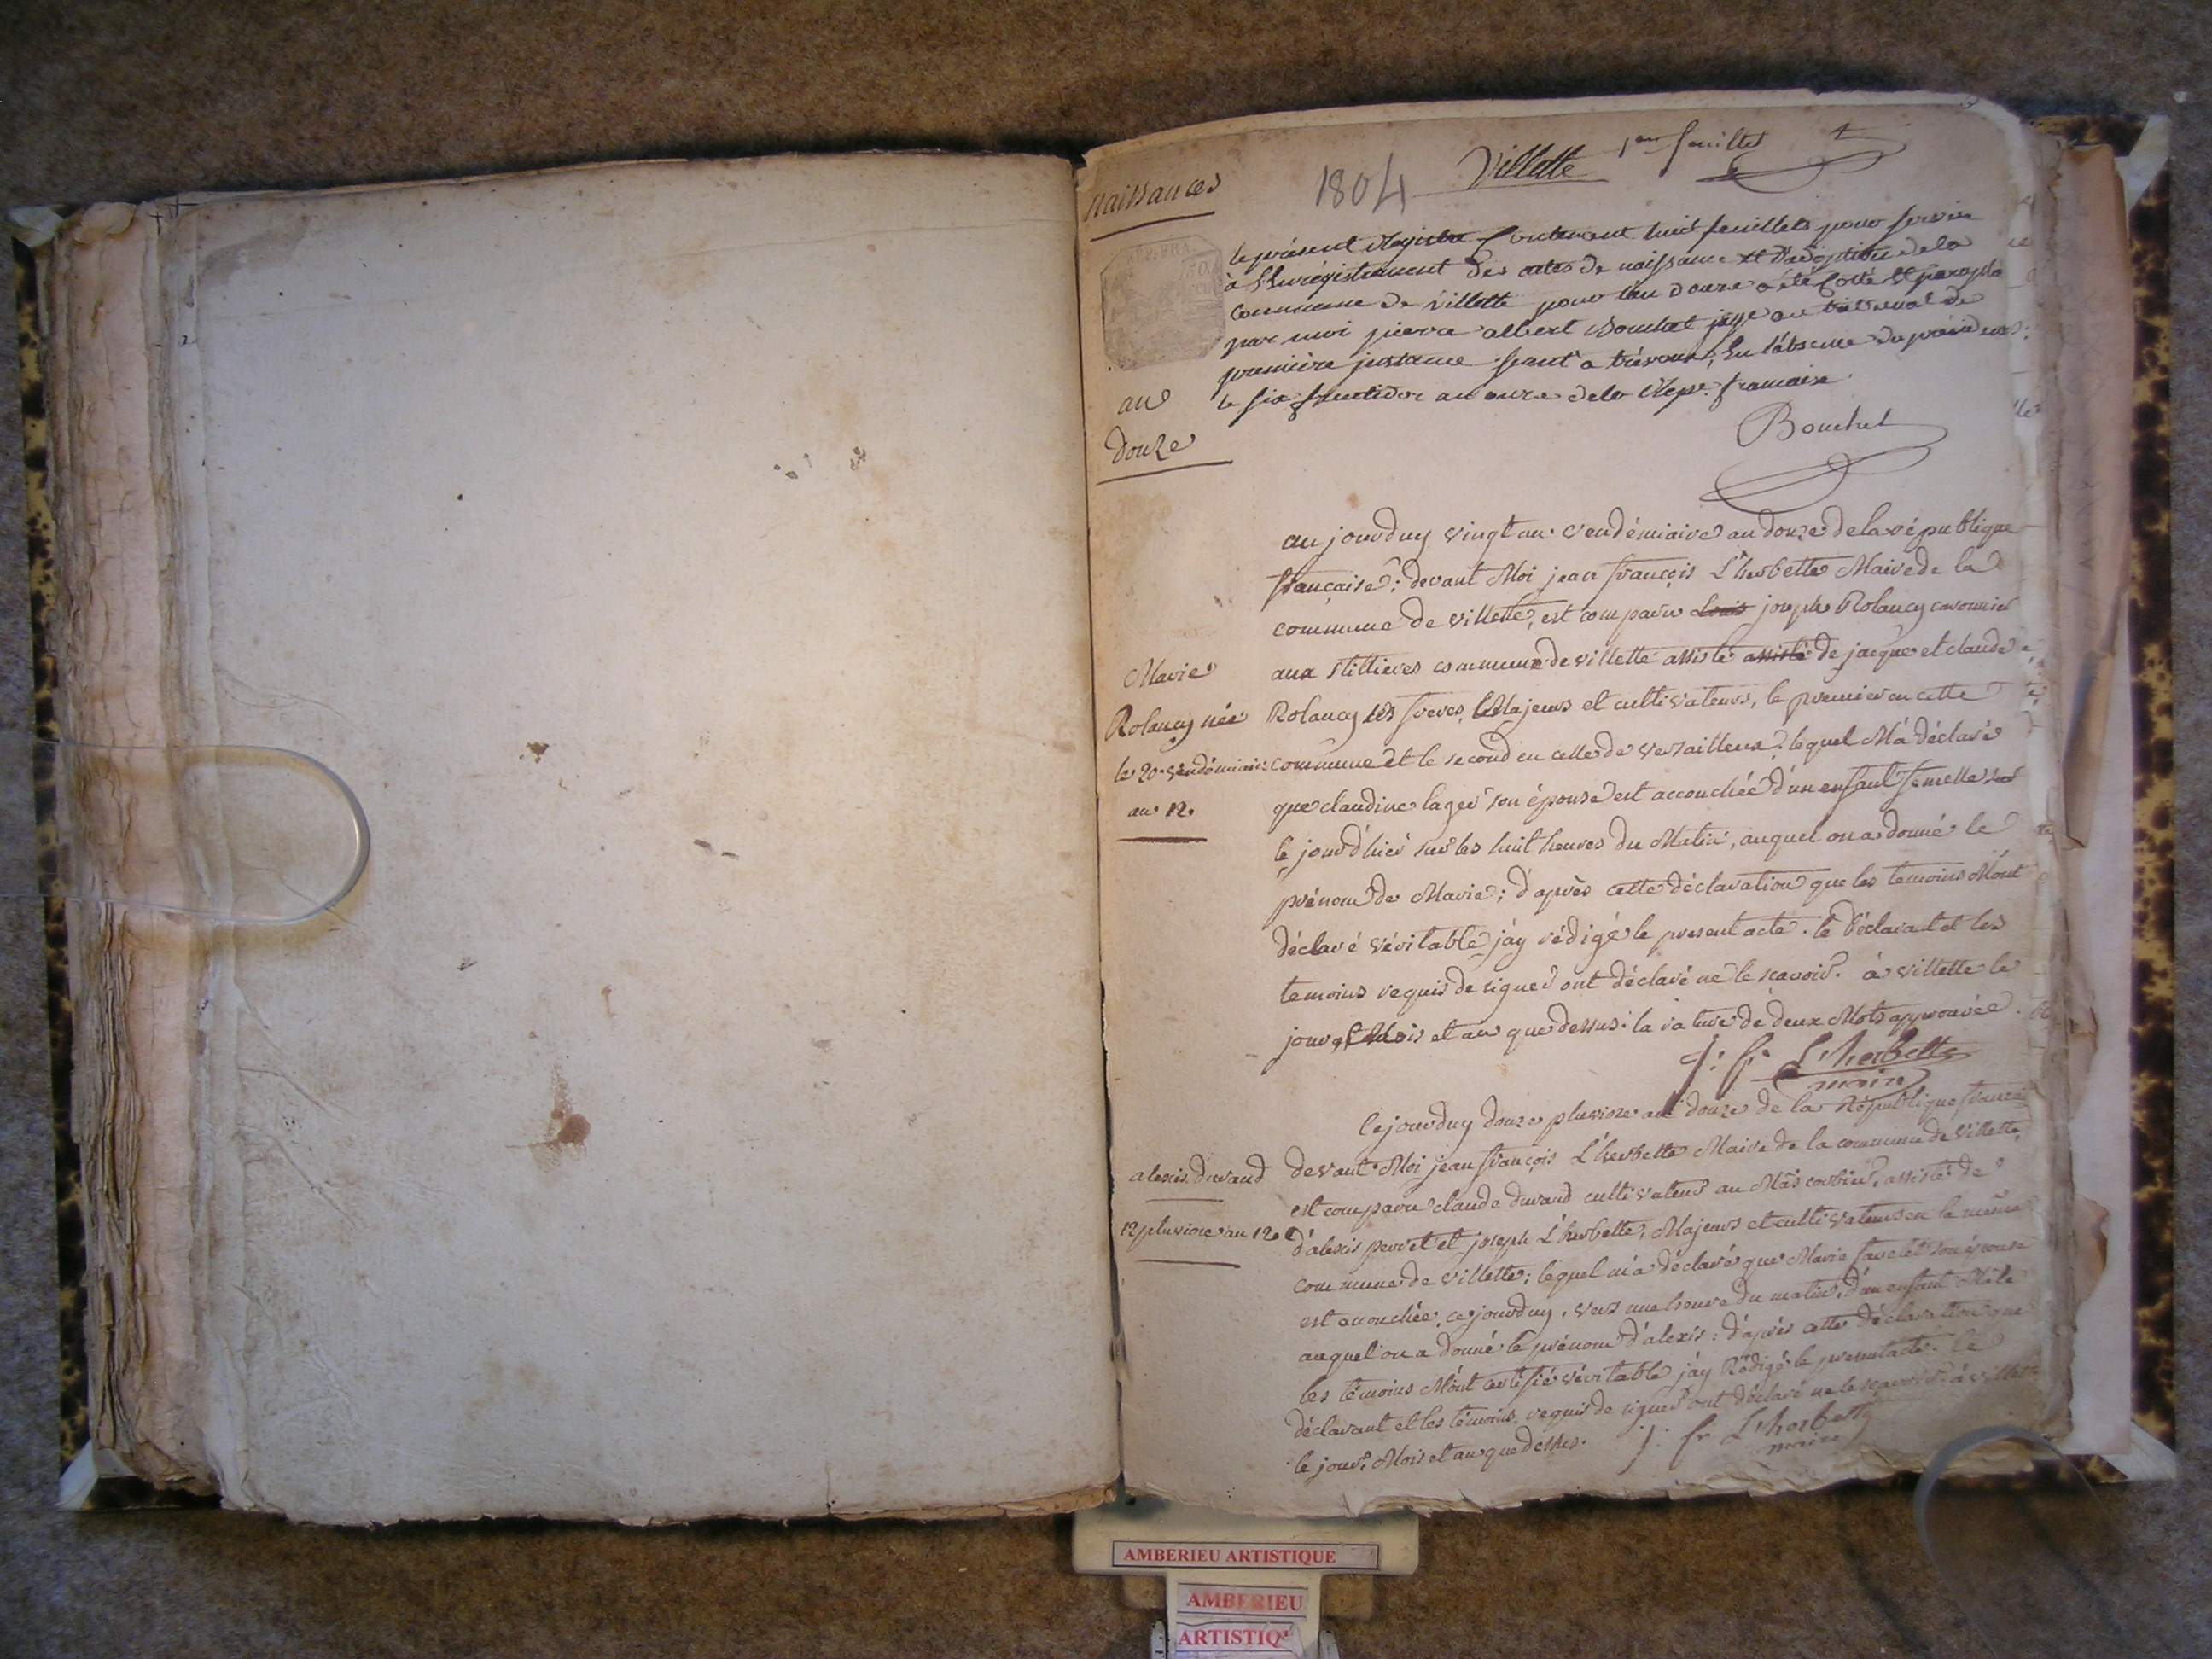 naissances
1804
Villette
1er feuillet
le présent Registre Contenant huit feuillets pour servir
à l'Enrégistrement des actes de naissance et d'adoption de la
commune de Villette pour l'an douze a été Cotté et paraphé
par moi pierre albert Bouchet juge au tribunal de
première jnstance séant a trévoux, En l'absence du président
le six fructidor an onze de la Rep.e francaise
Bouchet
an
douze
aujourduy vingt un vendémiaire an douze de la république
française; devant Moi jean françois L'herbette Maire de la
commune de villette, est comparu Louis joseph Rolancy
aux communede villette assisté assisté de jacque et claude
Rolancy ses freres, Majeurs et cultivateurs, le premier en cette
commune et le second en celle de versailleux; lequel M'a déclaré
que claudine lager son épouse est accouchée d'un enfant femelle
le jourd'hier sur les huit heures du Matin, auquel on a donné le
prénom de Marie; d'après cette déclaration que les temoins M'ont
déclaré véritable j'ay rédigé le present acte. le déclarant et les
temoins requis de signer ont déclaré ne le scavoir. à villette le
jour, Mois et an que dessus. la rature de deux Mots approuvée.
j: fr L'herbette
maire
Marie
Rolancy née
le 20 vendémiaire
an 12.
Cejourduy douze pluviose an douze de la République
devant Moi jean françois L'herbette Maire de la commune de villette,
est comparu claude durand cultivateur au Mas corbier, assisté de
d'alexis perret et joseph L'herbette, Majeurs et cultivateurs en la même
commune de villette; lequel m'a déclaré que Marie son épouse
est accouchée, cejourduy, vers une heure du matin, d'un enfant Mâle
auquel on a donné le prénom d'alexis: d'après cette déclaration que
les témoins M'ont certifié véritable j'ay Rédigé le present acte. le
déclarant et les témoins requis de signer ont déclaré ne le scavoir. à villette
le jour, Mois et an que dessus.
j: fr L'herbette
maire
alexis durand
12 pluviose an 12
AMBERIEU ARTISTIQUE
AMBERIEU
ARTISTIQ